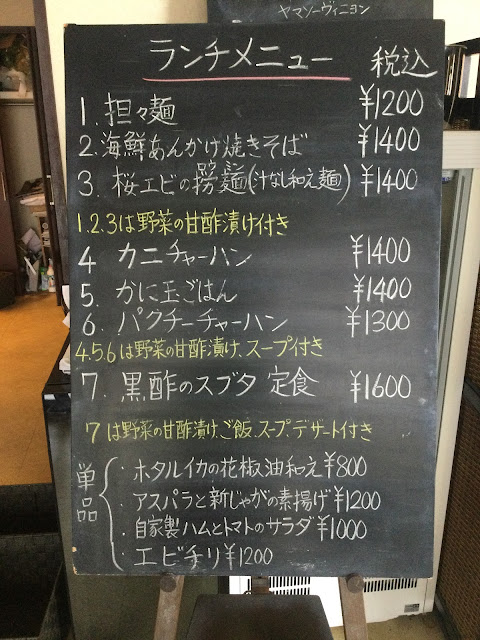 ヤマソーヴィニョン
ランチメニュー 税込
1. 担々麺 ¥1200
2. 海鮮あんかけ焼きそば ¥1400
3. 桜エビの撈麺(汁なし和え麺) ¥1400
1.2.3は野菜の甘酢漬け付き
4 カニチャーハン ¥1400
5. かに玉ごはん ¥1400
6. パクチーチャーハン ¥1300
4.5.6は野菜の甘酢漬け、スープ付き
7. 黒酢のスブタ 定食 ¥1600
7は野菜の甘酢漬け、ご飯、スープ、デザート付き
単品
・ホタルイカの花椒油和え ¥800
・アスパラと新じゃがの素揚げ ¥1200
・自家製ハムとトマトのサラダ ¥1000
・エビチリ ¥1200